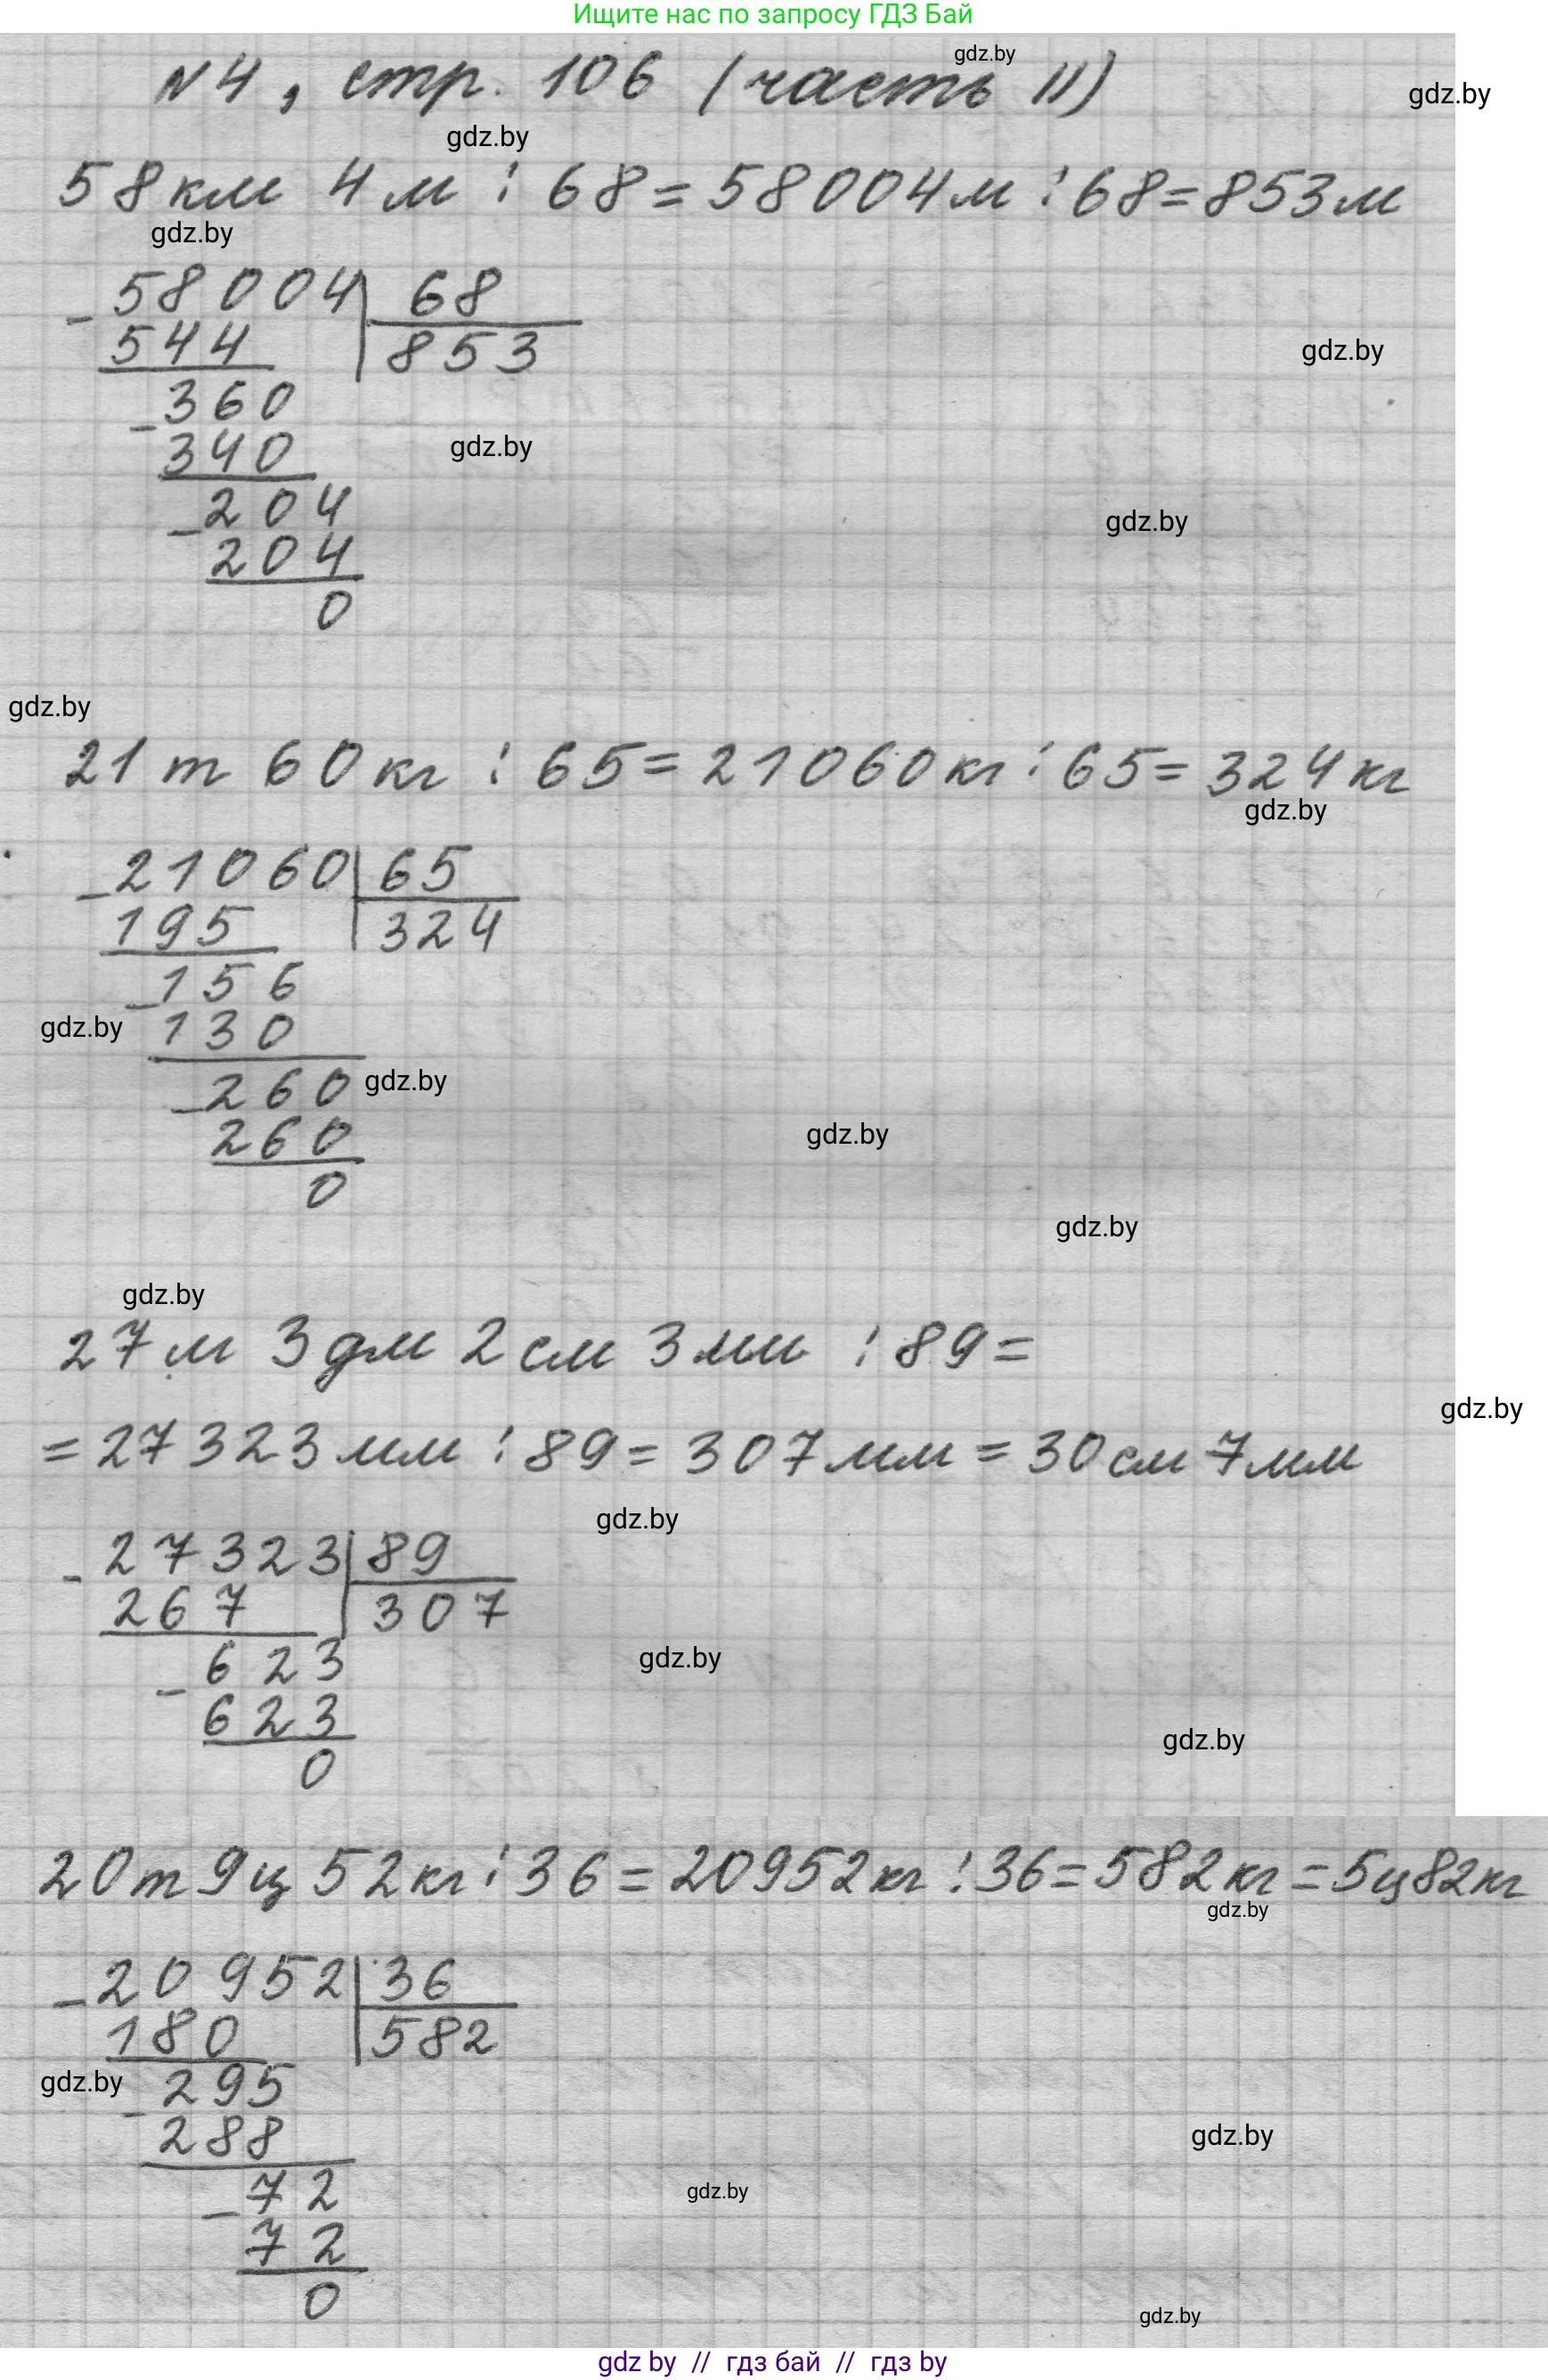 Ищите нас по запросу ГДЗ Бай
gdz.by
N4, стр. 106 (часть II)
gdz.by
gdz.by
58км 4м : 68 = 58004м : 68 = 853м
gdz.by
- 58004 | 68
544 | 853
gdz.by
- 360
340
gdz.by
- 204
gdz.by
204
0
gdz.by
21 т 60 кг : 65 = 21060 кг : 65 = 324 кг
gdz.by
- 21060 | 65
195 | 324
- 156
gdz.by
130
- 260
gdz.by
260
gdz.by
0
gdz.by
gdz.by
27 м 3 дм 2 см 3 мм : 89 =
gdz.by
= 27323 мм : 89 = 307 мм = 30 см 7 мм
gdz.by
- 27323 | 89
267 | 307
- 623
gdz.by
623
gdz.by
0
20т 9ц 52кг : 36 = 20952кг : 36 = 582кг = 5ц 82кг
gdz.by
- 20952 | 36
180 | 582
gdz.by
- 295
288
gdz.by
- 72
gdz.by
72
0
gdz.by
gdz by // гдз бай // гдз by